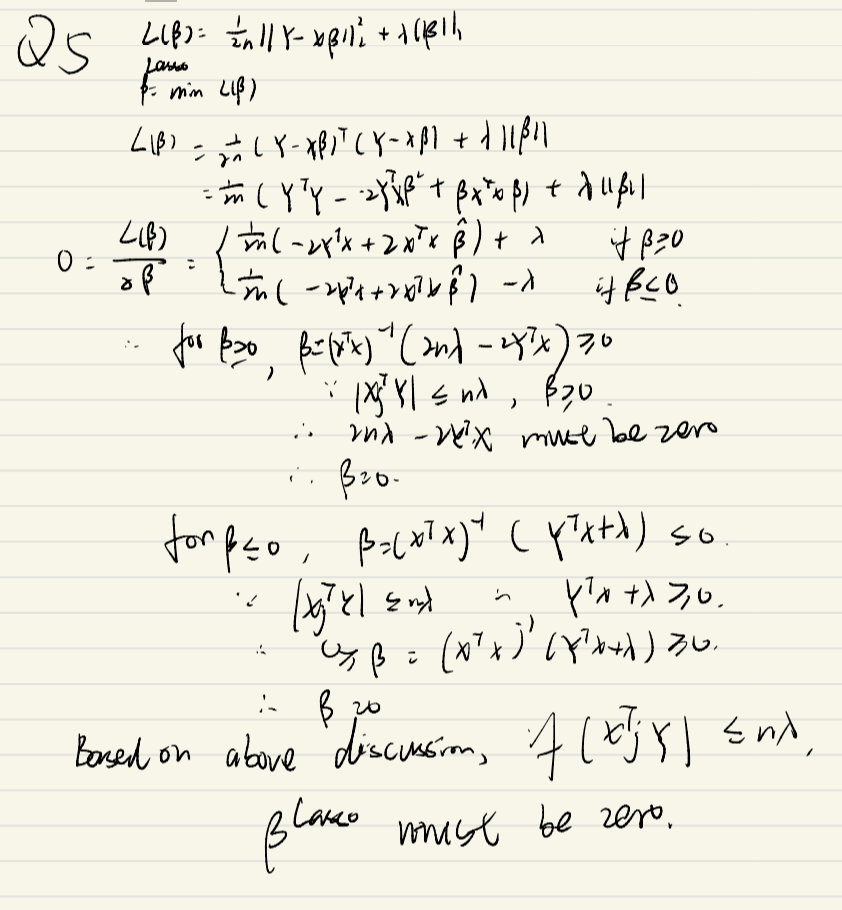 Q5 L(β) = 1/2n ||Y - Xβ||₂² + λ||β||₁
β^Lasso = min L(β)
L(β) = 1/2n (Y - Xβ)ᵀ(Y - Xβ) + λ||β||
= 1/2n (YᵀY - 2YᵀXβ + βXᵀXβ) + λ||β||
0 = L(β)/∂β = { 1/2n (-2YᵀX + 2XᵀX β̂) + λ if β≥0
1/2n (-2YᵀX + 2XᵀX β̂) - λ if β≤0.
∴ for β≥0, β=(XᵀX)⁻¹(2nλ - 2YᵀX) ≥0
∵ |XjᵀY| ≤ nλ, β≥0.
∴ 2nλ - 2YᵀX must be zero
∴ β=0.
for β≤0, β=(XᵀX)⁻¹ (YᵀX+λ) ≤0.
∵ |XjᵀY| ≤nλ ∴ YᵀX+λ ≥0.
∴ 0≥ β = (XᵀX)⁻¹(YᵀX+λ) ≥0.
∴ β=0
Based on above discussion, if |XᵀjY| ≤ nλ,
β^Lasso must be zero.